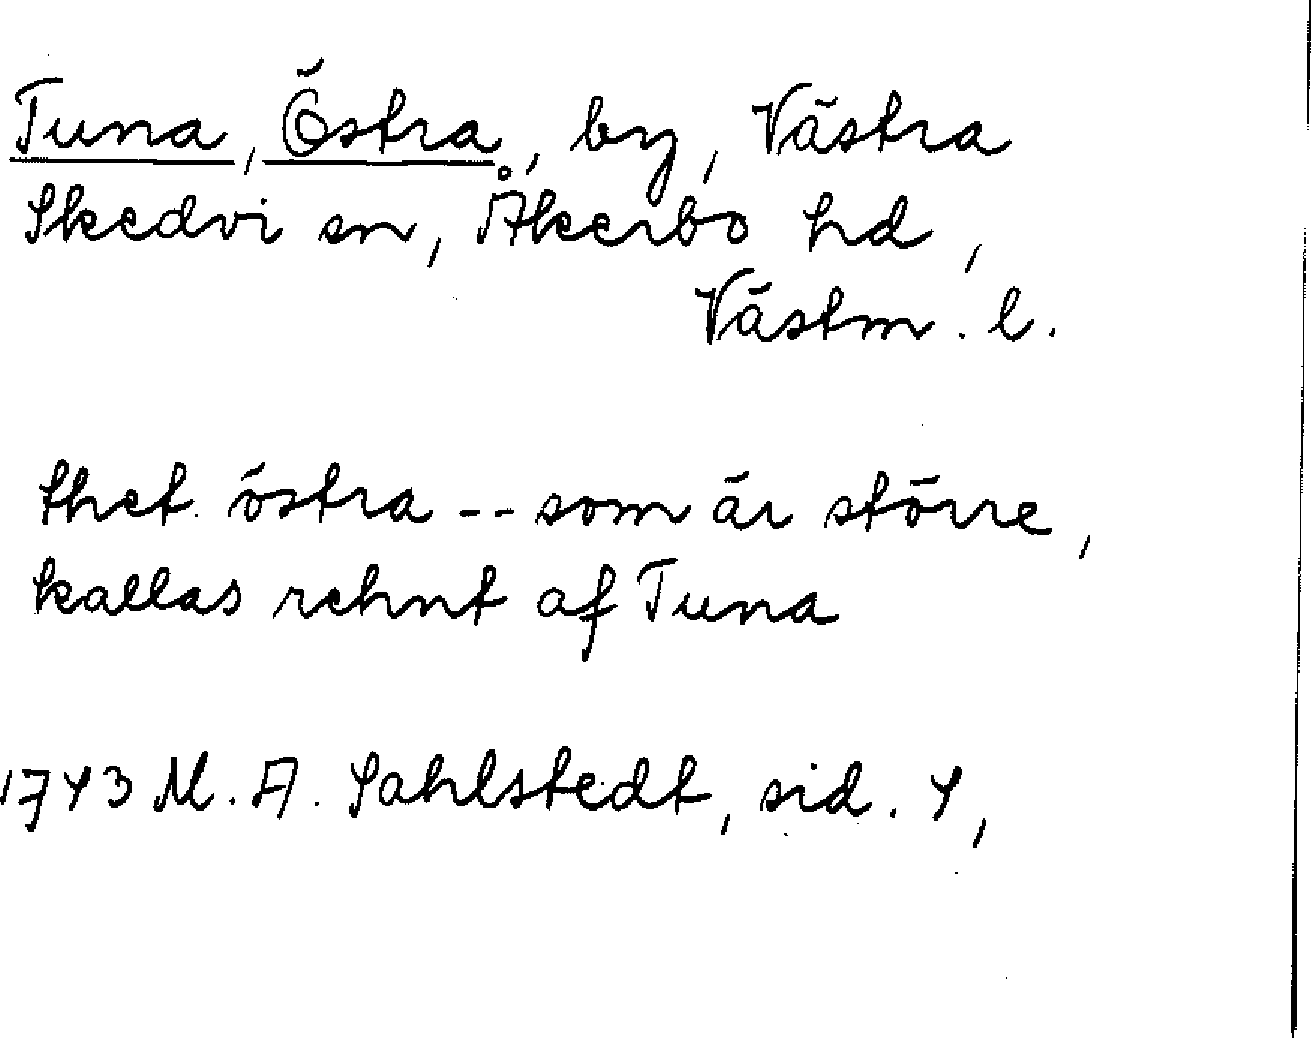 Tuna, Östra, by, Västra
Skedvi sn, Åkerbo hd,
Västm. l.
thet östra -- som är större,
kallas rehnt af Tuna
1743 M. A. Sahlstedt, sid. 4,